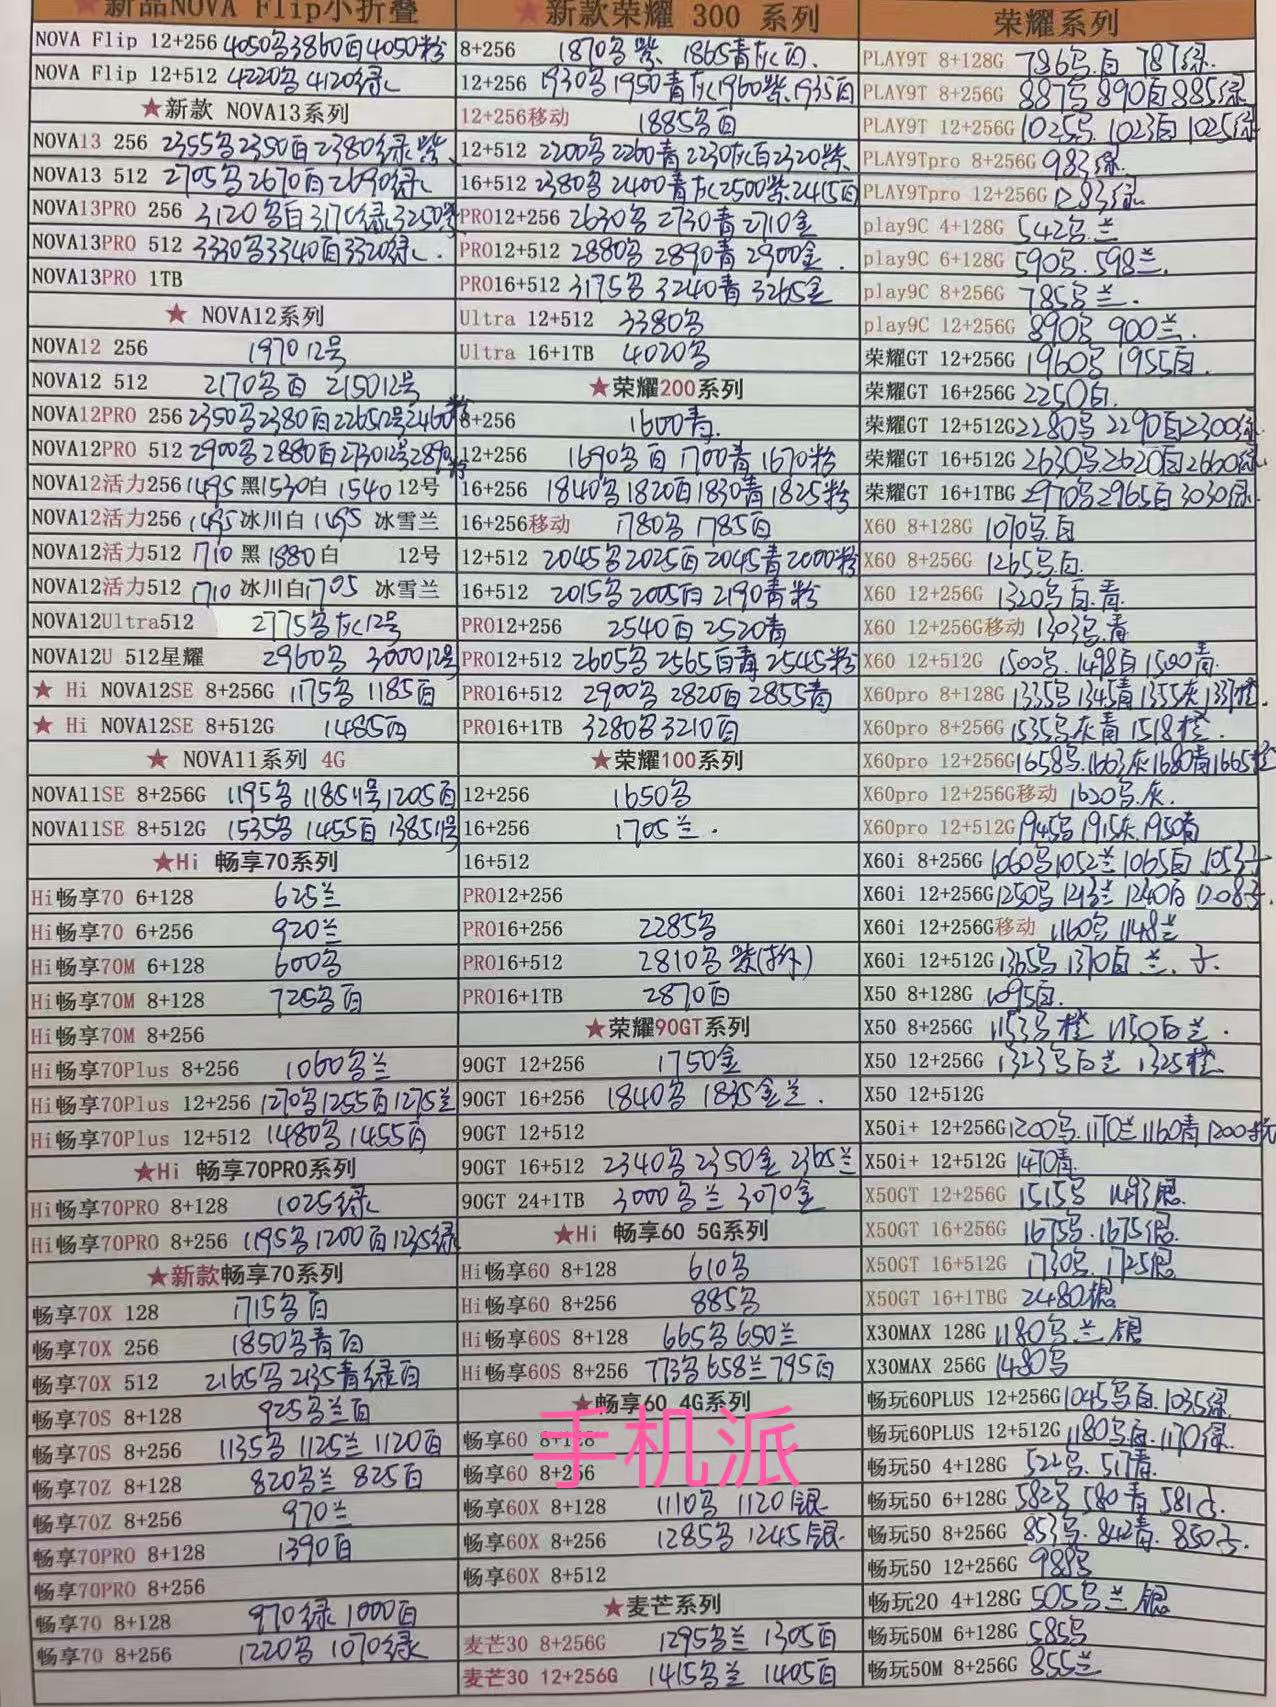 ★新品NOVA Flip小折叠
NOVA Flip 12+256 4050乌3860白4050粉
NOVA Flip 12+512 4220乌 4120绿
★新款 NOVA13系列
NOVA13 256 2355乌2350白2380绿紫
NOVA13 512 2705乌2670白2690绿
NOVA13PRO 256 3120乌白3170绿3250紫
NOVA13PRO 512 3330乌3340白3320绿.
NOVA13PRO 1TB
★ NOVA12系列
NOVA12 256 1970 12号
NOVA12 512 2170乌白 2150 12号
NOVA12PRO 256 2350乌2380白2265 12号2460粉
NOVA12PRO 512 2900乌2880白2730 12号2890粉
NOVA12活力256 1495 黑1530白 1540 12号
NOVA12活力256 1495 冰川白 1495 冰雪兰
NOVA12活力512 1710 黑 1880白 12号
NOVA12活力512 1710 冰川白 1705 冰雪兰
NOVA12Ultra512 2775乌灰12号
NOVA12U 512星耀 2960乌 3000 12号
★ Hi NOVA12SE 8+256G 1175乌 1185白
★ Hi NOVA12SE 8+512G 1485白
★ NOVA11系列 4G
NOVA11SE 8+256G 1195乌 1185 11号 1205白
NOVA11SE 8+512G 1535乌 1455白 1385 11号
★Hi 畅享70系列
Hi畅享70 6+128 625兰
Hi畅享70 6+256 920兰
Hi畅享70M 6+128 600乌
Hi畅享70M 8+128 725乌白
Hi畅享70M 8+256
Hi畅享70Plus 8+256 1060乌兰
Hi畅享70Plus 12+256 1270乌1255白1275兰
Hi畅享70Plus 12+512 1480乌1455白
★Hi 畅享70PRO系列
Hi畅享70PRO 8+128 1025绿
Hi畅享70PRO 8+256 1195乌1200白1235绿
★新款畅享70系列
畅享70X 128 1715乌白
畅享70X 256 1850乌青白
畅享70X 512 2165乌2135青绿白
畅享70S 8+128 925乌兰白
畅享70S 8+256 1135乌 1125兰 1120白
畅享70Z 8+128 820乌兰 825白
畅享70Z 8+256 970兰
畅享70PRO 8+128 1390白
畅享70PRO 8+256
畅享70 8+128 970绿 1000白
畅享70 8+256 1220乌 1070绿
★新款荣耀 300 系列
8+256 1870乌紫 1865青灰白.
12+256 1930乌1950青灰1960紫1935白
12+256移动 1885乌白
12+512 2200乌2260青2230灰白2320紫
16+512 2380乌2400青灰2500紫2415白
PRO12+256 2630乌 2730青2710金
PRO12+512 2880乌 2890青 2900金.
PRO16+512 3175乌 3240青 3265金
Ultra 12+512 3380乌
Ultra 16+1TB 4020乌
★荣耀200系列
8+256 1600青.
12+256 1690乌白 1700青 1670粉
16+256 1840乌1820白1830青1825粉
16+256移动 1780乌 1785白
12+512 2045乌2025白2045青2000粉
16+512 2015乌 2005白 2190青粉
PRO12+256 2540白2520青
PRO12+512 2605乌2565白青2545粉
PRO16+512 2900乌2820白2855青
PRO16+1TB 3280乌3210白
★荣耀100系列
12+256 1650乌
16+256 1705兰.
16+512
PRO12+256
PRO16+256 2285乌
PRO16+512 2810乌紫(拆)
PRO16+1TB 2870白
★荣耀90GT系列
90GT 12+256 1750金
90GT 16+256 1840乌 1835金兰.
90GT 12+512
90GT 16+512 2340乌2350金2365兰
90GT 24+1TB 3000乌兰 3070金
★Hi 畅享60 5G系列
Hi畅享60 8+128 610乌
Hi畅享60 8+256 885乌
Hi畅享60S 8+128 665乌 650兰
Hi畅享60S 8+256 773乌658兰795白
★畅享60 4G系列
畅享60 8+128
手机派
畅享60 8+256
畅享60X 8+128 1110乌 1120银
畅享60X 8+256 1285乌 1245银
畅享60X 8+512
★麦芒系列
麦芒30 8+256G 1295乌兰 1305白
麦芒30 12+256G 1415乌兰 1405白
荣耀系列
PLAY9T 8+128G 786乌.白 787绿.
PLAY9T 8+256G 887乌 890白885绿
PLAY9T 12+256G 1025乌.1023白1025绿
PLAY9Tpro 8+256G 983绿
PLAY9Tpro 12+256G 1283绿
play9C 4+128G 542乌.兰
play9C 6+128G 590乌.598兰.
play9C 8+256G 785乌兰.
play9C 12+256G 890乌 900兰.
荣耀GT 12+256G 1960乌 1955白.
荣耀GT 16+256G 2250白.
荣耀GT 12+512G2280乌 2290白2300绿
荣耀GT 16+512G 2630乌2620白2660绿
荣耀GT 16+1TBG 2970乌2965白3030绿
X60 8+128G 1070乌.白
X60 8+256G 1265乌白.
X60 12+256G 1320乌白.青.
X60 12+256G移动 1303乌.青
X60 12+512G 1500乌.1498白1500青.
X60pro 8+128G 1335乌1345青1355灰1337橙.
X60pro 8+256G 1535乌灰青 1518橙.
X60pro 12+256G1658乌.1663灰1680青1665橙
X60pro 12+256G移动 1620乌.灰.
X60pro 12+512G 1945乌1915灰.1950青
X60i 8+256G 1060乌1052兰1065白.1053子
X60i 12+256G1250乌1213兰1240白 1208子.
X60i 12+256G移动 1160乌 1148兰
X60i 12+512G 1365乌1370白 兰.子.
X50 8+128G 1095白.
X50 8+256G 1153乌 橙 1150白兰.
X50 12+256G 1323乌白兰 1325橙.
X50 12+512G
X50i+ 12+256G1200乌.1170兰1160青1200
X50i+ 12+512G 1470青.
X50GT 12+256G 1515乌 1493银.
X50GT 16+256G 1675乌.1675银.
X50GT 16+512G 1730乌.1725银
X50GT 16+1TBG 2480银
X30MAX 128G 1180乌兰 银
X30MAX 256G 1480乌
畅玩60PLUS 12+256G1045乌.白.1035绿
畅玩60PLUS 12+512G 1180乌白.1170绿.
畅玩50 4+128G 522乌.517青.
畅玩50 6+128G 582乌 580青 581子.
畅玩50 8+256G 853乌.842青.850子.
畅玩50 12+256G 988乌
畅玩20 4+128G 505乌兰 银
畅玩50M 6+128G 585乌
畅玩50M 8+256G 855兰